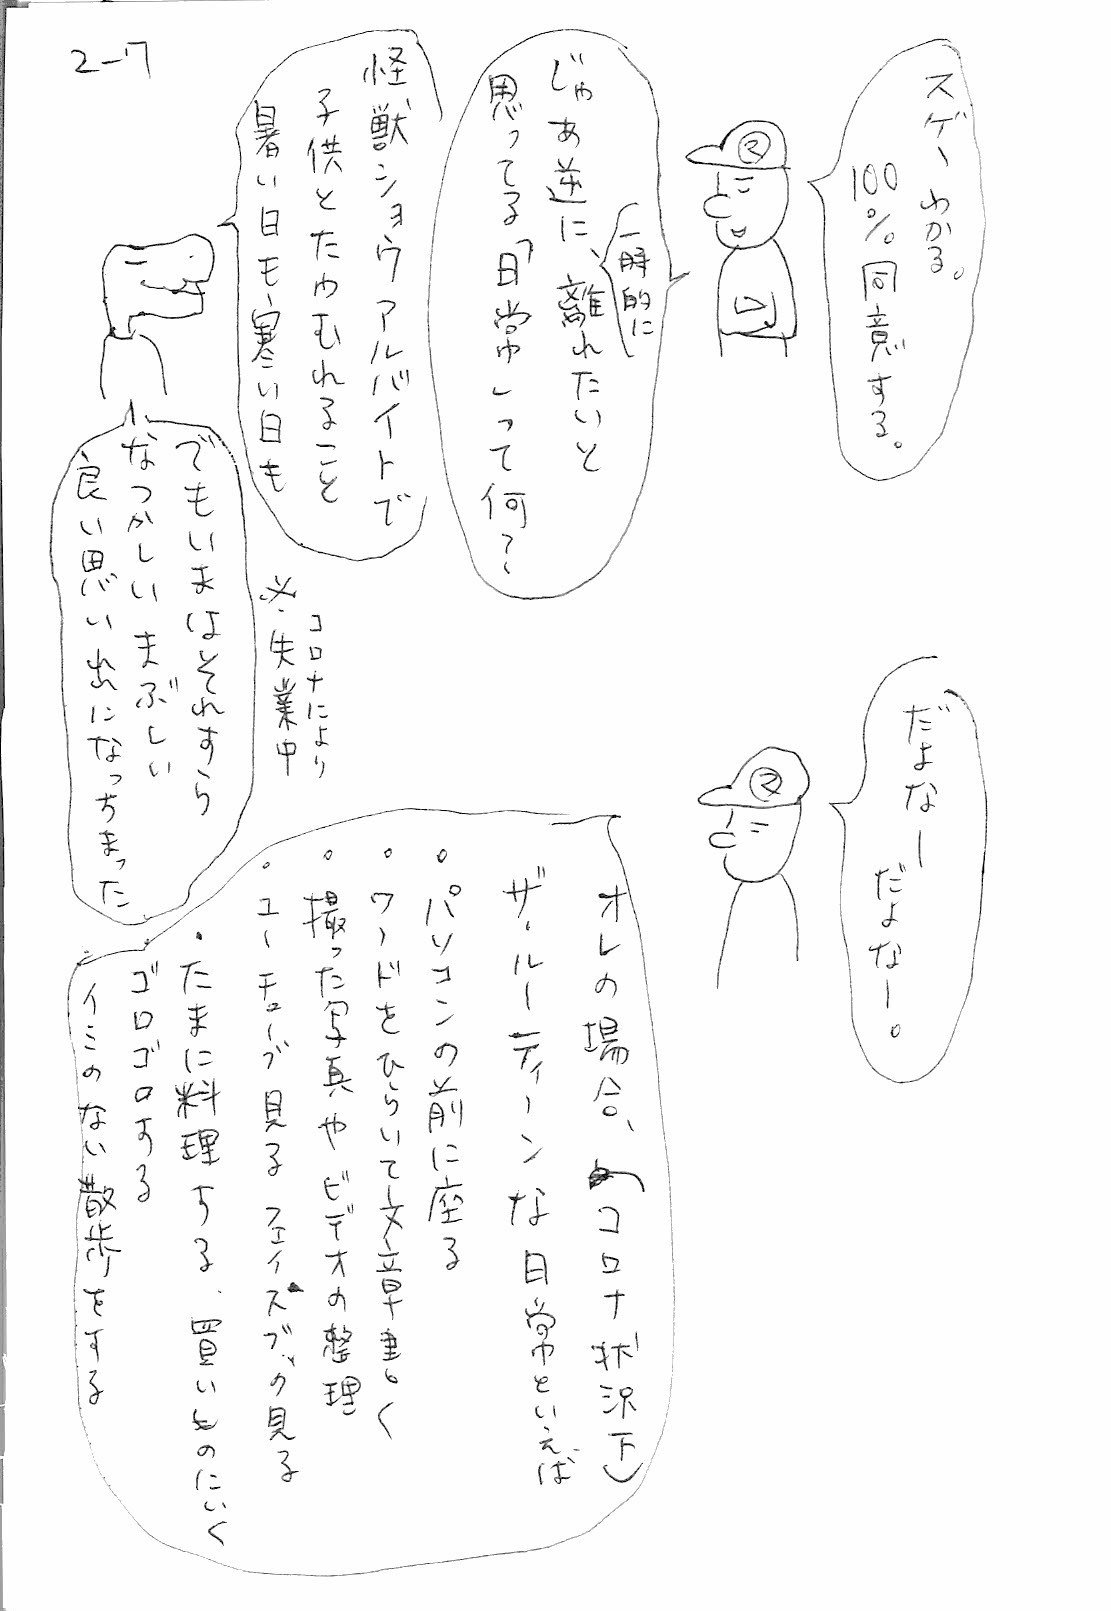 2-7
スゲーわかる。
100%同意する。
じゃあ逆に、離れたいと
(一時的に)
思ってる「日常」って何?
怪獣ショウアルバイトで
子供とたわむれること
暑い日も寒い日も
でもいまはそれすら
なつかしいまぶしい
良い思い出になっちまった
コロナにより
※失業中
だよなー
だよなー。
オレの場合、(コロナ状況下)
ザ・ルーティーンな日常といえば
・パソコンの前に座る
・ワードをひらいて文章書く
・撮った写真やビデオの整理
・ユーチューブ見るフェイスブック見る
・たまに料理する、買いものにいく
・ゴロゴロする
・イミのない散歩をする
マ
マ